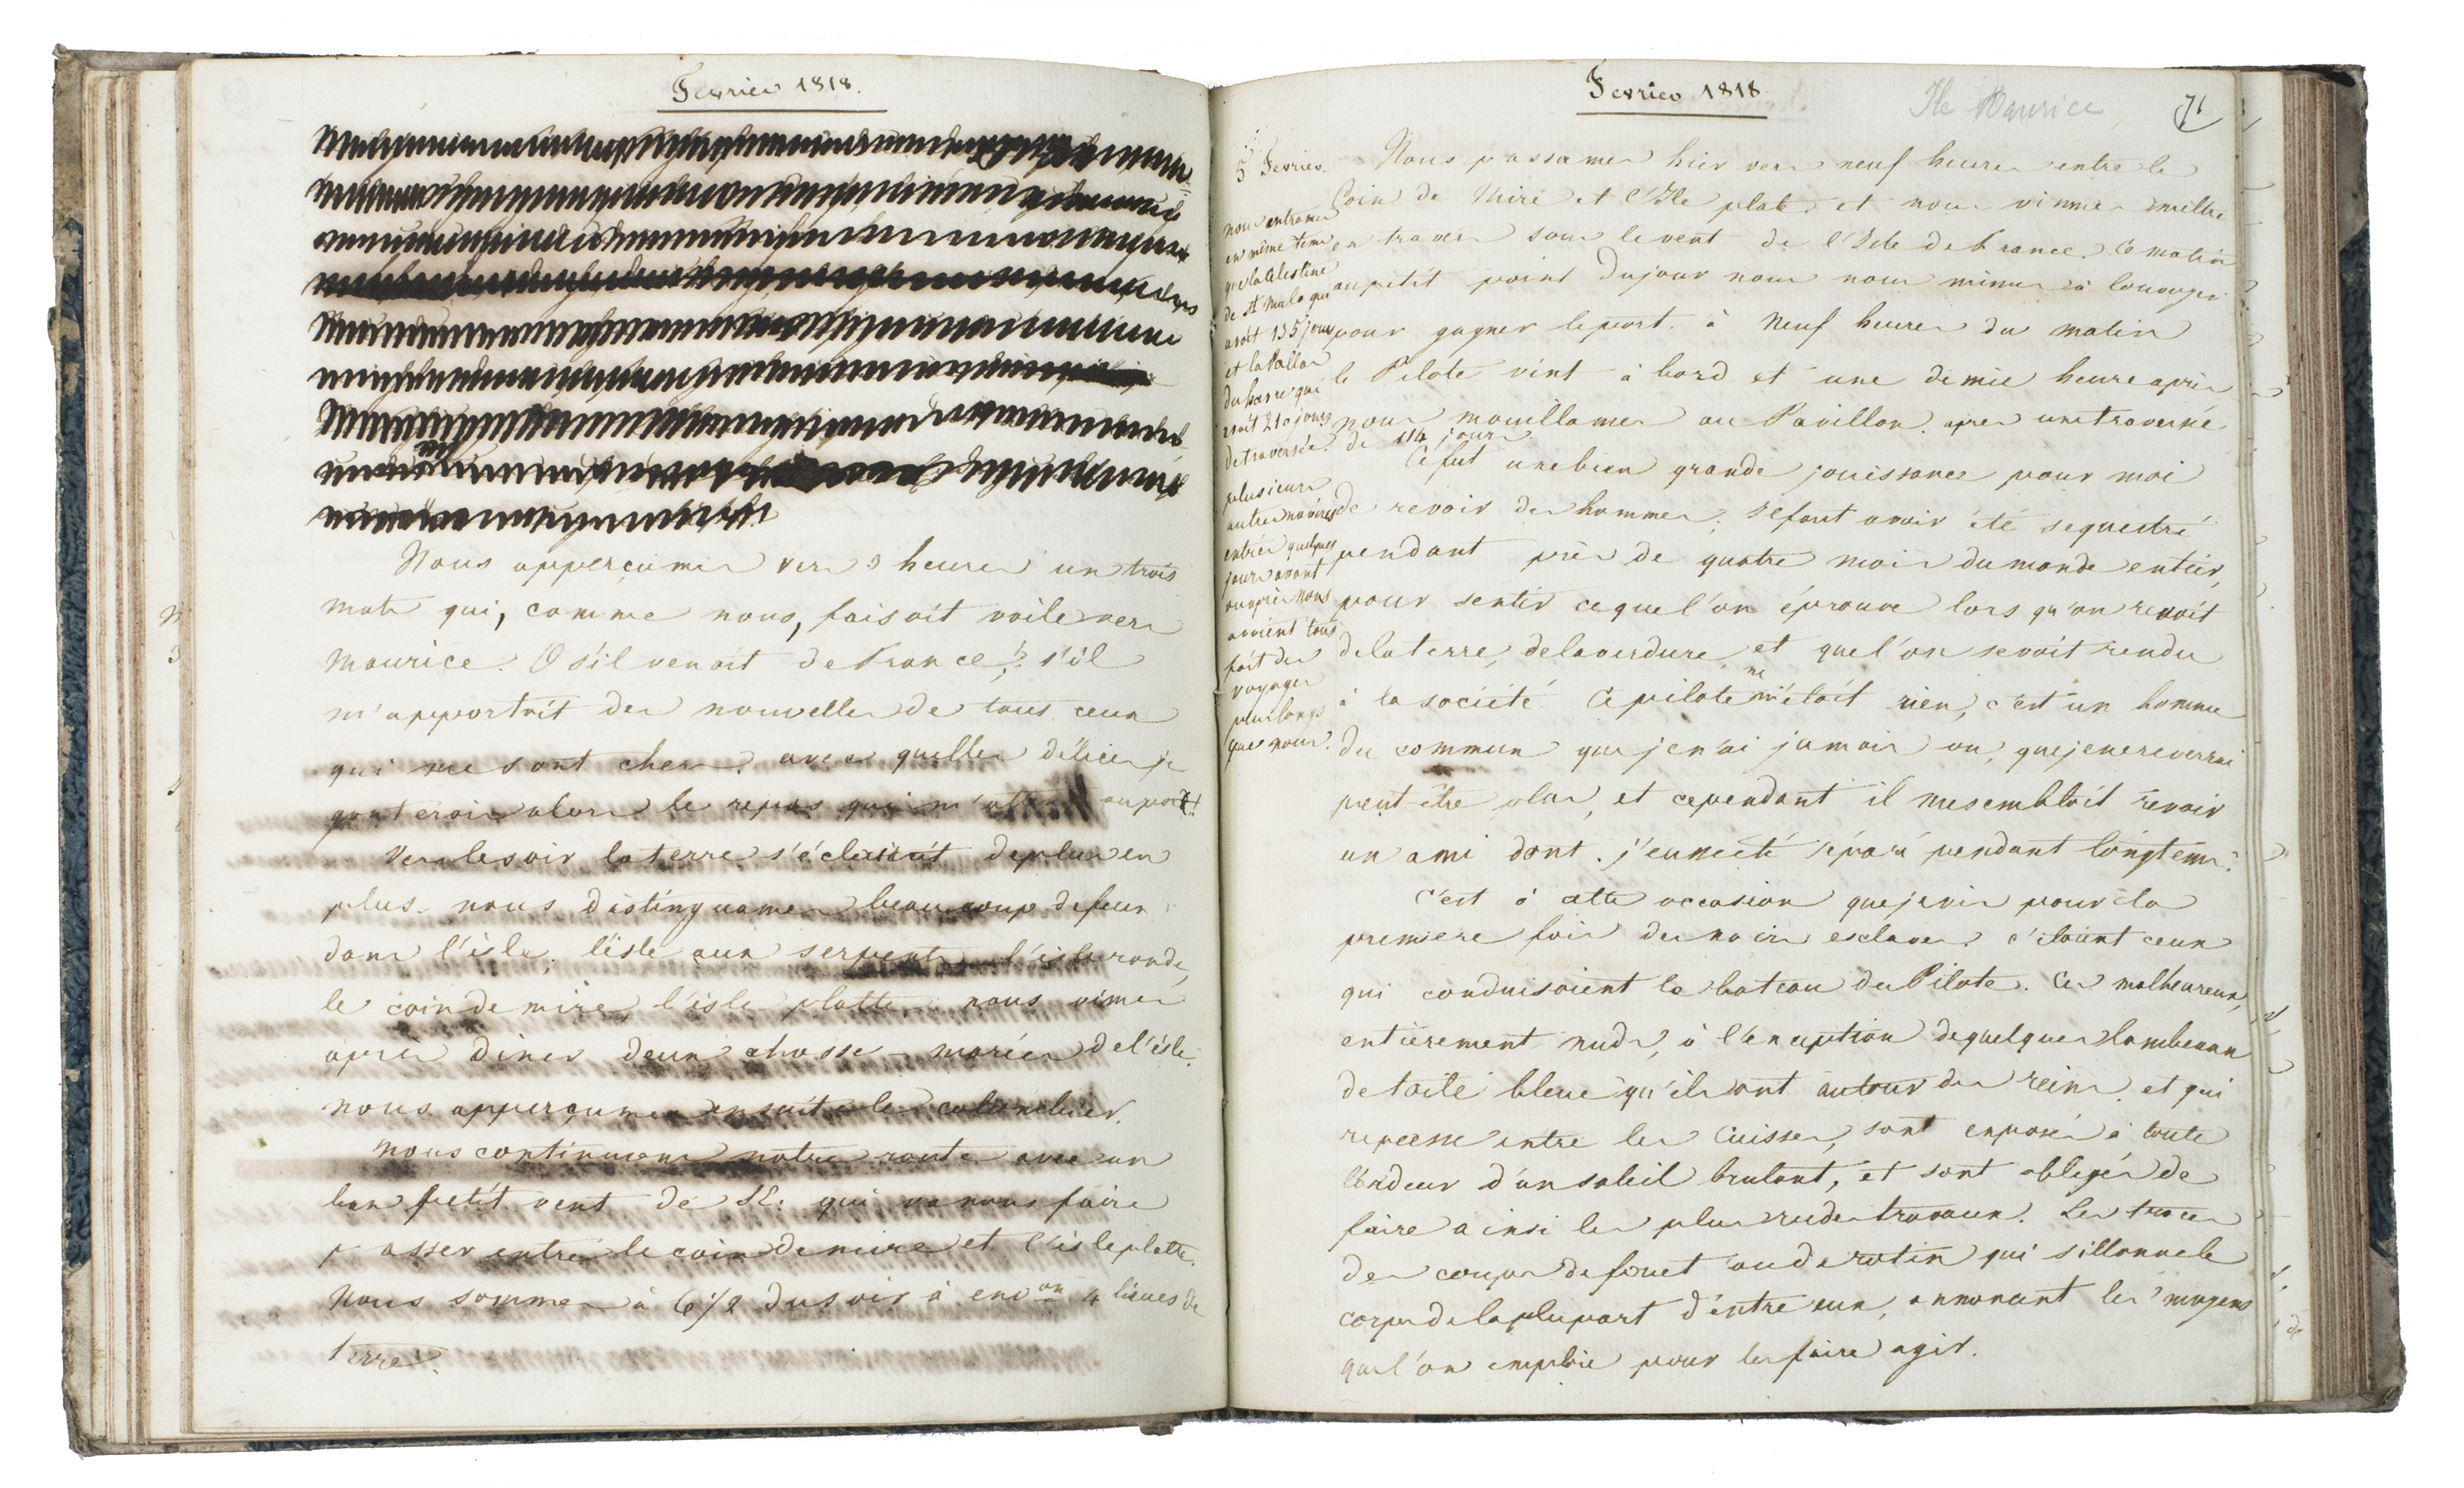 Fevrier 1818.
Nous apperçumes vers 3 heures un trois
mats qui, comme nous, faisoit voile vers
Maurice. O s'il venoit de France!? s'il
m'apportoit des nouvelles de tous ceux
qui me sont chers, avec quelles délices je
gouterois alors le repos qui m'attend au port!
Vers le soir la terre s'éclaircit de plus en
plus. nous distinguames beaucoup de feux
dans l'isle; l'isle aux serpents, l'isle ronde,
le coin de mire, l'isle platte. nous vimes
après diner deux chasse-marées de l'isle.
nous apperçumes ensuite le colombier.
Nous continuons notre route avec un
bon petit vent de SE. qui va nous faire
passer entre le coin de mire et l'isle platte.
Nous sommes à 6 1/2 du soir à env.on 4 lieues de
terre.
Fevrier 1818
Ile Maurice
71
5 Fevrier. Nous passames hier vers neuf heures entre le
Coin de Mire et l'Ile plate. et nous vinmes mettre
en travers sous le vent de l'Isle de France. Ce matin
au petit point du jour nous nous mimes à louvoyer
pour gagner le port. à Neuf heures du matin
le Pilote vint à bord et une demie heure après
nous mouillames au Pavillon. apres une traversée
de 114 jours
Ce fut une bien grande jouissance pour moi
de revoir des hommes; Il faut avoir été sequestré
pendant près de quatre mois du monde entier,
pour sentir ce que l'on éprouve lors qu'on revoit
de la terre, de la verdure, et que l'on se voit rendu
à la société. Ce pilote ne m'étoit rien, c'est un homme
du commun que je n'ai jamais vu, que je ne reverrai
peut-être plus, et cependant il me sembloit revoir
un ami dont j'eus été séparé pendant longtems.
C'est à cette occasion que je vis pour la
premiere fois des noirs esclaves. c'étoient ceux
qui conduisoient le bateau du Pilote. Ces malheureux,
entièrement nuds, à l'exception de quelques lambeaux
de toile bleue qu'ils ont autour des reins, et qui
repasse entre les cuisses, sont exposés à toute
l'ardeur d'un soleil brulant, et sont obligés de
faire ainsi les plus rudes travaux. Les traces
des coups de fouet ou de rotin qui sillonne le
corps de la plupart d'entre eux, annoncent les moyens
que l'on emploie pour les faire agir.
nous entrames
en même tems
que la Celestine
de St Malo qui
avoit 135 jours
et la Pallas
du havre qui
avoit 210 jours
de traversée.
plusieurs
autres navires
entrés quelques
jours avant
ou après nous
avoient tous
fait des
voyages
plus longs
que nous.